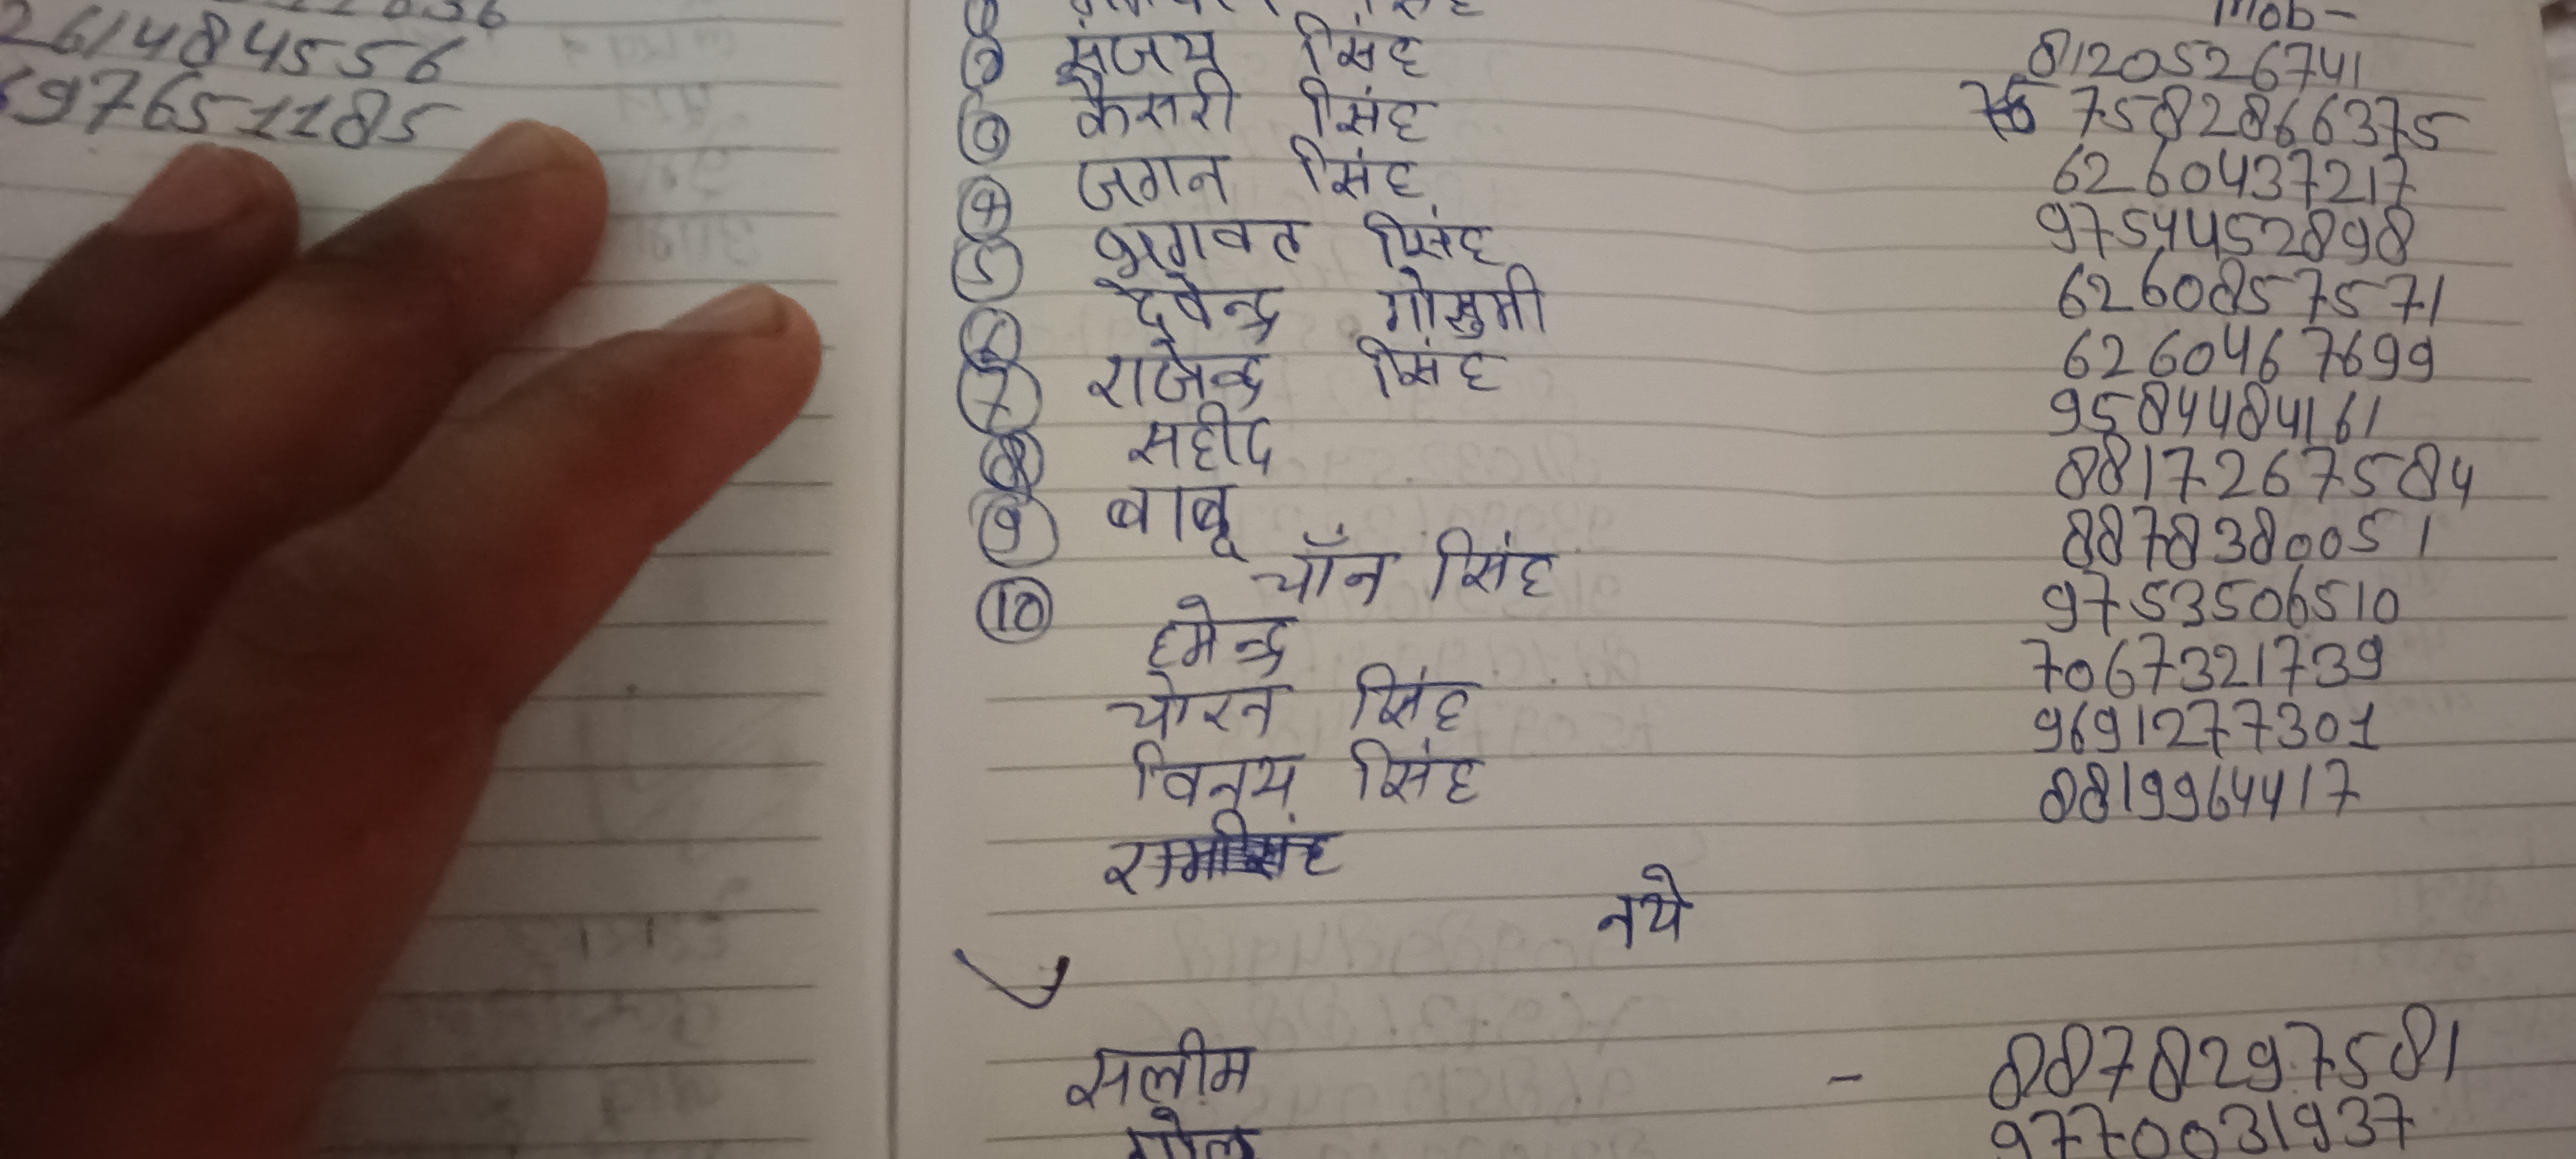 261484556
697651185
Mob-
संजय सिंह 8120526741
③ केसरी सिंह 7582866375
④ जगन सिंह 6260437217
⑤ भगवत सिंह 9754452898
⑥ देवेन्द्र गोसुमी 6260857571
⑦ राजेन्द्र सिंह 6260467699
⑧ सहीद 9584484161
⑨ बाबू 8817267584
⑩ चॉन सिंह 8878380051
हमेन्द्र 9753506510
चोरन सिंह 7067321739
विनय सिंह 9691277301
8819964417
नये
सलीम - 8878297581
गोलू 9770031937